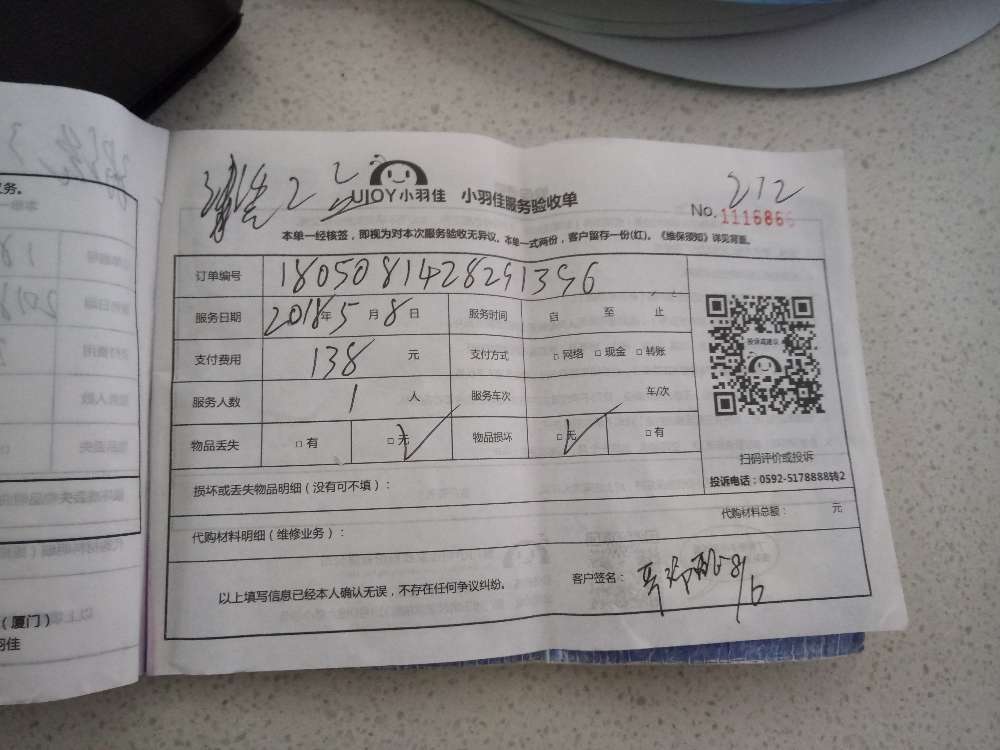 212
UJOY小羽佳 小羽佳服务验收单
No. 1116866
本单一经核签，即视为对本次服务验收无异议。本单一式两份，客户留存一份(红)。《维保须知》详见背面。
订单编号 1805081428291396
服务日期 2018年5月8日 服务时间 自 至 止
支付费用 138 元 支付方式 □网络 □现金 □转账
服务人数 1 人 服务车次 车/次
物品丢失 □有 □无 ✓ 物品损坏 □无 ✓ □有
投诉或建议
扫码评价或投诉
投诉电话：0592-5178888转2
损坏或丢失物品明细（没有可不填）：
代购材料明细（维修业务）： 代购材料总额： 元
以上填写信息已经本人确认无误，不存在任何争议纠纷。 客户签名：
（厦门）
羽佳